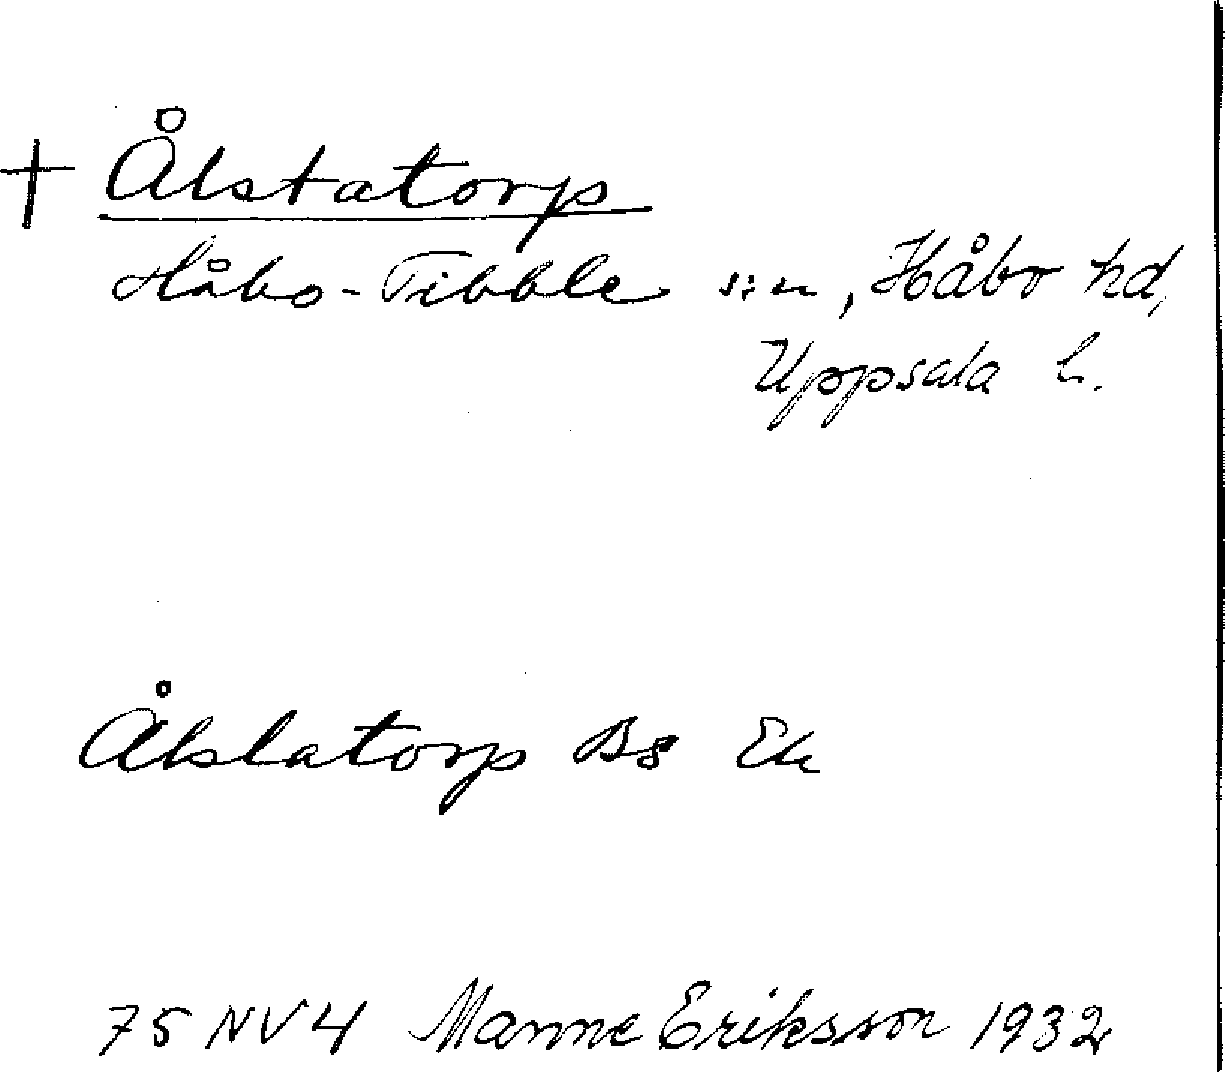 + Ålstatorp
Håbo-Tibble s:n, Håbo hd,
Uppsala l.
Ålstatorp Bs Ek
75 NV 4 Manne Eriksson 1932